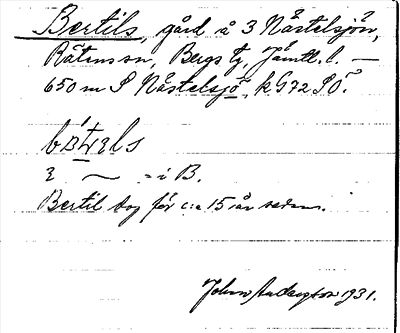 Bertils, gård å 3 Nästelsjön,
Rätans sn, Bergs tg, Jämtl. l. —
650 m S Nästelsjö, k. G72 SÖ.
ɛ ~ - i B.
Bertil dog för c:a 15 år sedan.
John Andersson 1931.